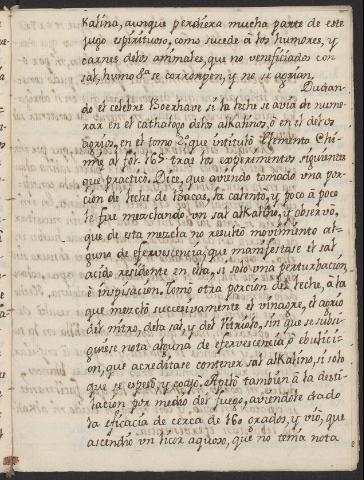 Kalina, aunque perdiera mucha parte de este
jugo espirituoso, como sucede à los humores, y
carnes delos animales, que no veneficiados con
sal, humo &a se corrompen, y no se agrian.
Dudan-
do el celebre Boerhave si la leche se avia de nume-
rar en el cathalogo delos alKalinos, ò en el delos
agrios, en el tomo 2º que intituló Elementa Chi-
miae al fol. 165 trae los experimentos siguientes
que practicó. Dice, que aviendo tomado una por-
cion de leche de Bacas, la calentó, y poco à poco
le fue mezclando un sal alKalino, y observò,
que de esta mezcla no resultó movimiento al-
guno de efervescencia, que manifestase el sal
acido residente en ella, si solo una perturbacion,
è inspisacion. Tomó otra porcion del leche, à la
que mezclò successivamente el vinagre, el agrio
del nitro, dela sal, y del Vitriolo, sin que se subsi-
guiese nota alguna de efervescencia, ò ebulici-
on, que acreditase contener sal alKalino, si solo
que se espesó, y coajó. Apeló tambien à la desti-
lacion por medio del fuego, aviendole dado
la eficacia de cerca de 160 grados, y viò, que
ascendiò un licor aquoso, que no tenia nota